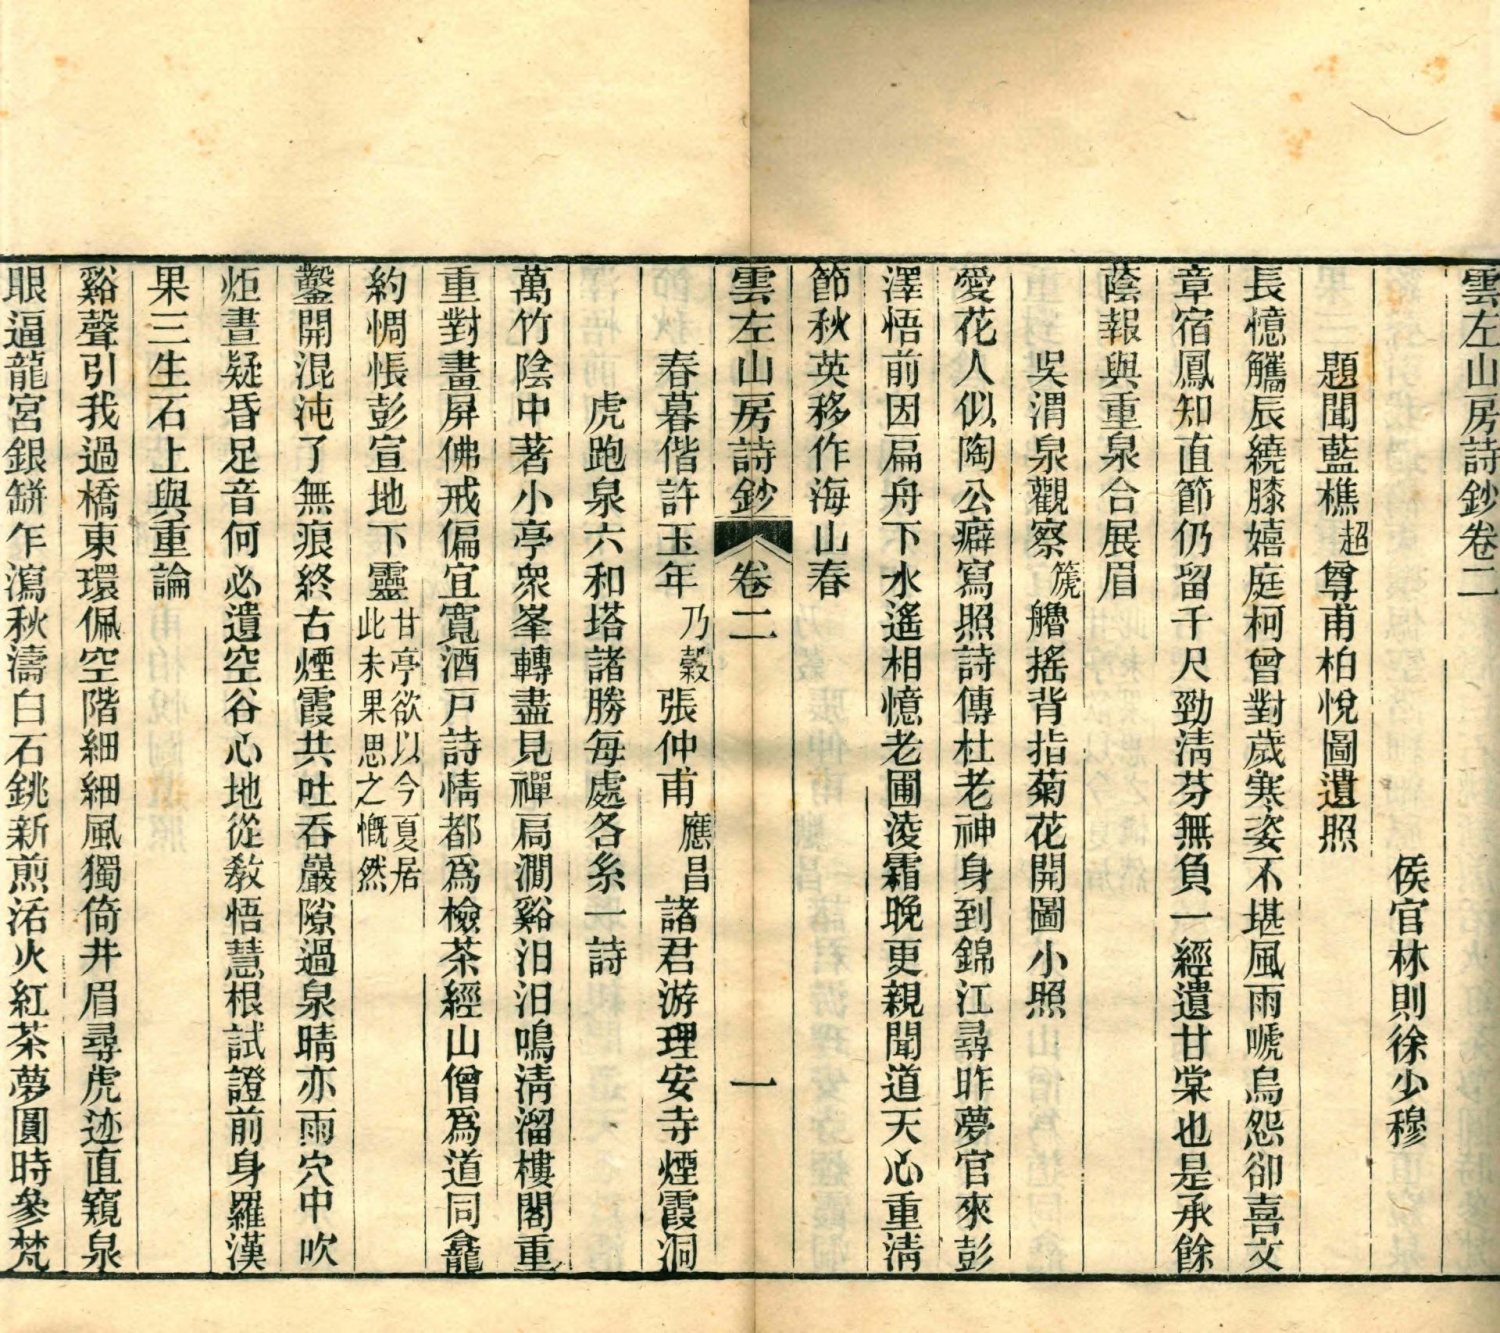 雲左山房詩鈔卷二
侯官林則徐少穆
題聞藍樵超尊甫柏悅圖遺照
長憶觿辰繞膝嬉庭柯曾對歲寒姿不堪風雨嗁烏怨卻喜文
章宿鳳知直節仍留千尺勁淸芬無負一經遺甘棠也是承餘
蔭報與重泉合展眉
吳渭泉觀察篪艪搖背指菊花開圖小照
愛花人似陶公癖寫照詩傳杜老神身到錦江尋昨夢官來彭
澤悟前因扁舟下水遙相憶老圃淩霜晚更親聞道天心重淸
節秋英移作海山春
雲左山房詩鈔 卷二 一
春暮偕許玉年乃穀張仲甫應昌諸君游理安寺煙霞洞
虎跑泉六和塔諸勝每處各系一詩
萬竹陰中著小亭眾峯轉盡見禪扃澗谿汩汩鳴淸溜樓閣重
重對畫屏佛戒偏宜寬酒戸詩情都爲檢茶經山僧爲道同龕
約惆悵彭宣地下靈甘亭欲以今夏居此未果思之慨然
鑿開混沌了無痕終古煙霞共吐吞巖隙過泉晴亦雨穴中吹
炬晝疑昏足音何必遺空谷心地從敎悟慧根試證前身羅漢
果三生石上與重論
谿聲引我過橋東環佩空階細細風獨倚井眉尋虎迹直窺泉
眼逼龍宮銀缾乍瀉秋濤白石銚新煎活火紅茶夢圓時參梵